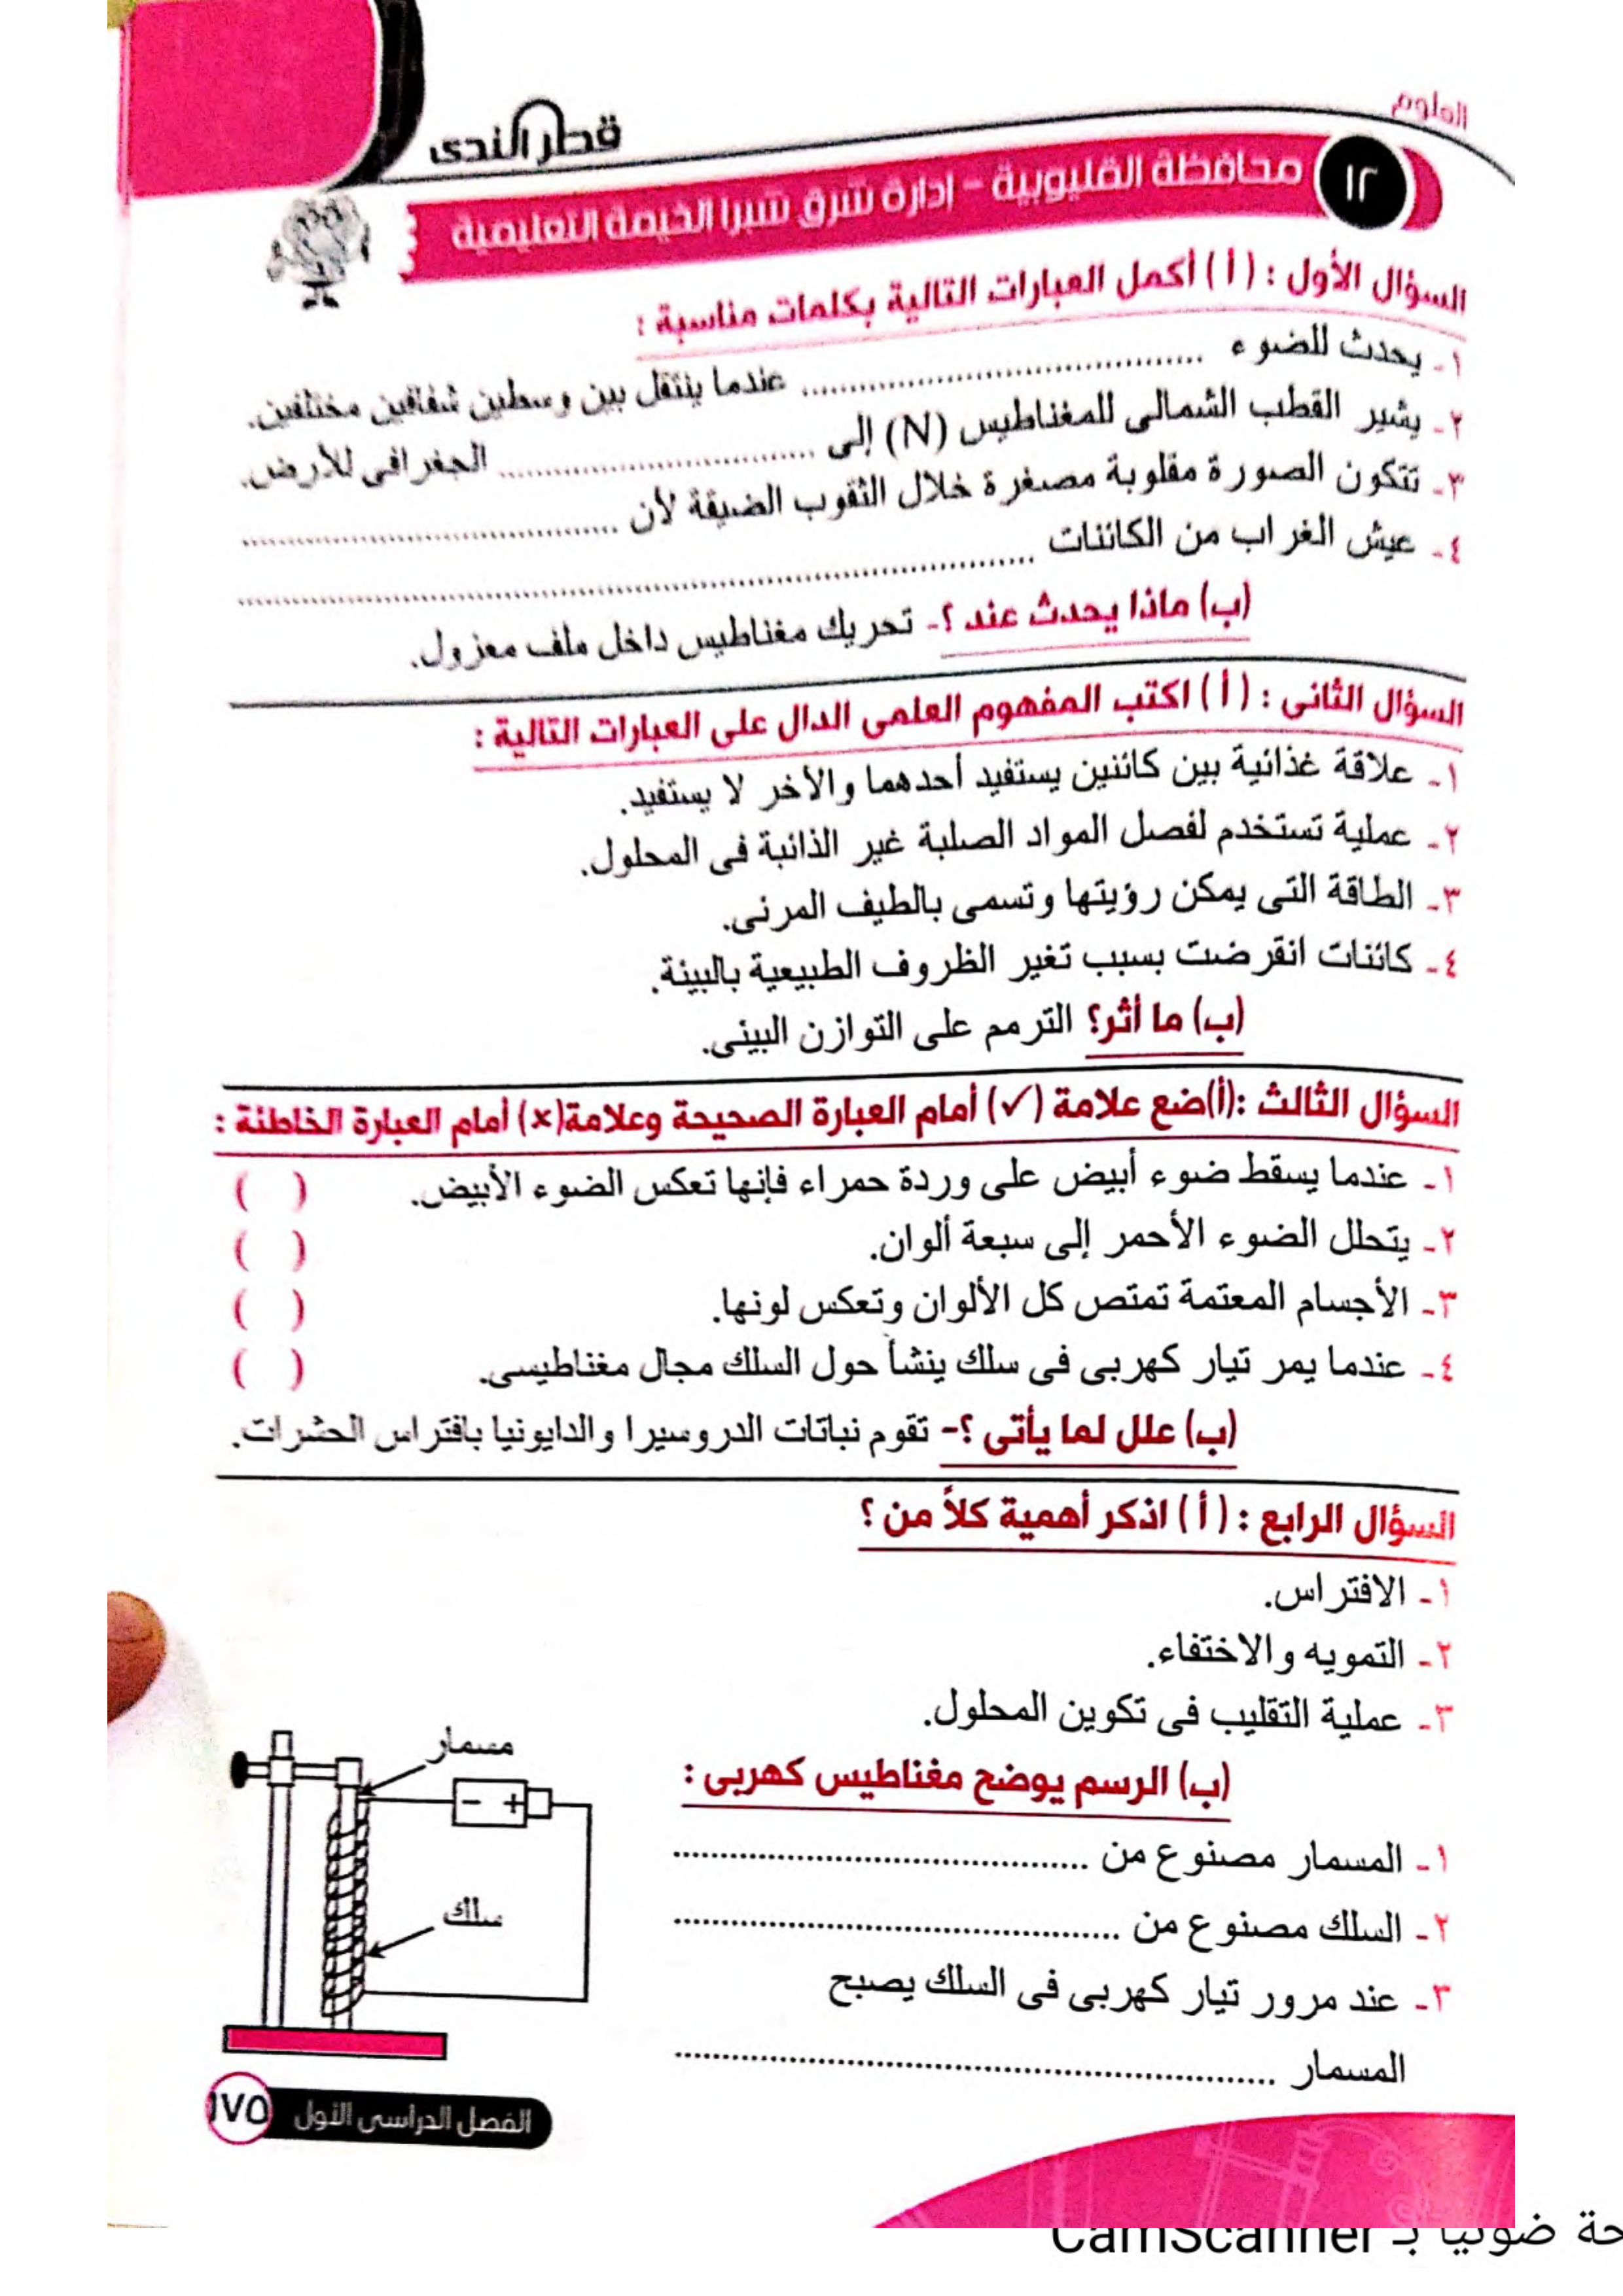 العلوم
قطر الندى
١٢ محافظة القليوبية - إدارة شرق شبرا الخيمة التعليمية
السؤال الأول : ( أ ) أكمل العبارات التالية بكلمات مناسبة :
١- يحدث للضوء ........................ عندما ينتقل بين وسطين شفافين مختلفين.
٢- يشير القطب الشمالى للمغناطيس (N) إلى ........................ الجغرافى للأرض.
٣- تتكون الصورة مقلوبة مصغرة خلال الثقوب الضيقة لأن ........................
٤- عيش الغراب من الكائنات ........................
(ب) ماذا يحدث عند ؟- تحريك مغناطيس داخل ملف معزول.
السؤال الثانى : ( أ ) اكتب المفهوم العلمى الدال على العبارات التالية :
١- علاقة غذائية بين كائنين يستفيد أحدهما والأخر لا يستفيد.
٢- عملية تستخدم لفصل المواد الصلبة غير الذائبة فى المحلول.
٣- الطاقة التى يمكن رؤيتها وتسمى بالطيف المرئى.
٤- كائنات انقرضت بسبب تغير الظروف الطبيعية بالبيئة.
(ب) ما أثر؟ الترمم على التوازن البيئى.
السؤال الثالث :(أ)ضع علامة (✓) أمام العبارة الصحيحة وعلامة(×) أمام العبارة الخاطئة :
١- عندما يسقط ضوء أبيض على وردة حمراء فإنها تعكس الضوء الأبيض. ( )
٢- يتحلل الضوء الأحمر إلى سبعة ألوان. ( )
٣- الأجسام المعتمة تمتص كل الألوان وتعكس لونها. ( )
٤- عندما يمر تيار كهربى فى سلك ينشأ حول السلك مجال مغناطيسى. ( )
(ب) علل لما يأتى ؟- تقوم نباتات الدروسيرا والدايونيا بافتراس الحشرات.
السؤال الرابع : ( أ ) اذكر أهمية كلاً من ؟
١- الافتراس.
٢- التمويه والاختفاء.
٣- عملية التقليب فى تكوين المحلول.
(ب) الرسم يوضح مغناطيس كهربى :
١- المسمار مصنوع من ........................
٢- السلك مصنوع من ........................
٣- عند مرور تيار كهربى فى السلك يصبح
المسمار ........................
مسمار
- +
سلك
الفصل الدراسى الأول ١٧٥
ضوئيا بـ CamScanner